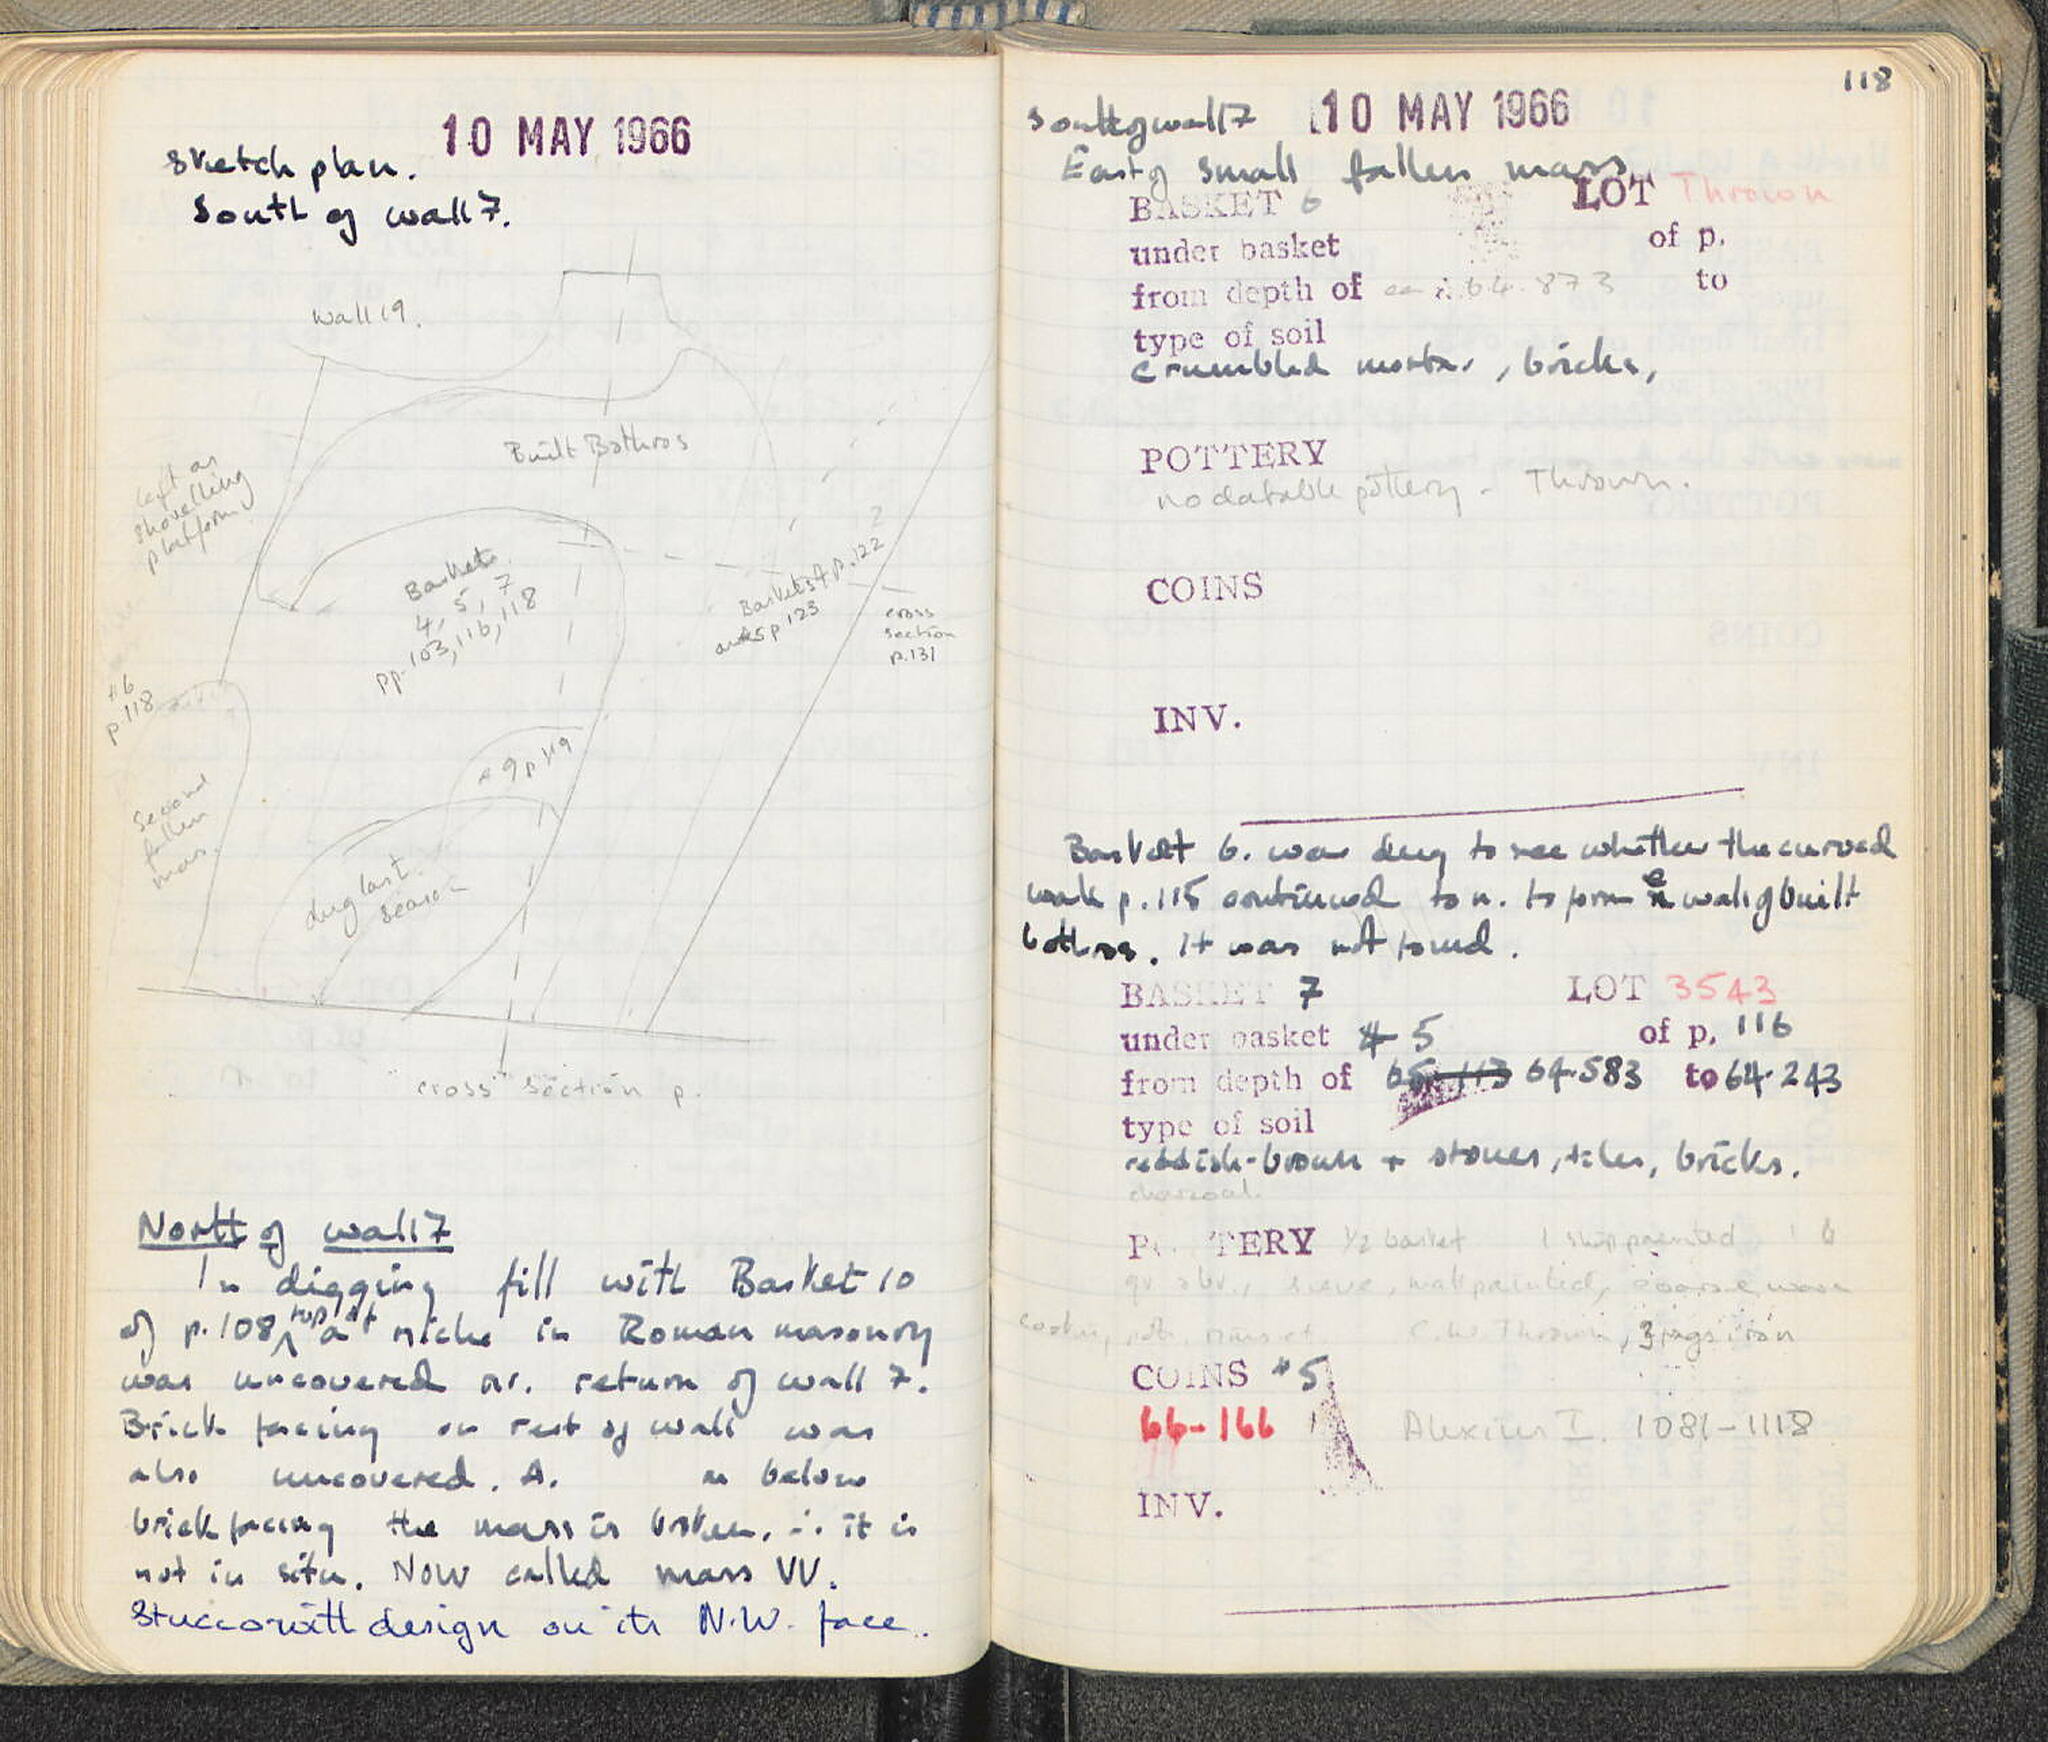 10 MAY 1966
Sketch plan.
South of wall 7.
wall 19.
Built Bothros
left as
shovelling
platform
Baskets
4, 5, 7
pp. 103, 116, 118
Baskets 4 p. 122
and 5 p 123
cross
section
p. 131
#6
p. 118
# 9 p 119
second
fallen
mass.
dug last
season
cross section p.
North of wall 7
In digging fill with Basket 10
of p. 108, top of a niche in Roman masonry
was uncovered nr. return of wall 7.
Brick facing on rest of wall was
also uncovered. A. below
brick facing the mass is broken, ∴ it is
not in situ. Now called mass VV.
Stucco with design on its N.W. face.
118
South of wall 7 10 MAY 1966
East of small fallen mass
BASKET 6 LOT Thrown
under basket of p.
from depth of 64.873 to
type of soil
crumbled mortar, bricks,
POTTERY
no datable pottery - Thrown.
COINS
INV.
Basket 6. was dug to see whether the curved
wall p. 115 continued to n. to form e wall of built
bothros. It was not found.
BASKET 7 LOT 3543
under basket # 5 of p. 116
from depth of 65.113 64.583 to 64.243
type of soil
reddish-brown + stones, tiles, bricks.
charcoal.
POTTERY 1/2 basket 1 slip painted
sieve, matt painted, coarse ware
C.W. Thrown, 3 frags iron
COINS #5
66-166 1 Alexius I. 1081-1118
INV.